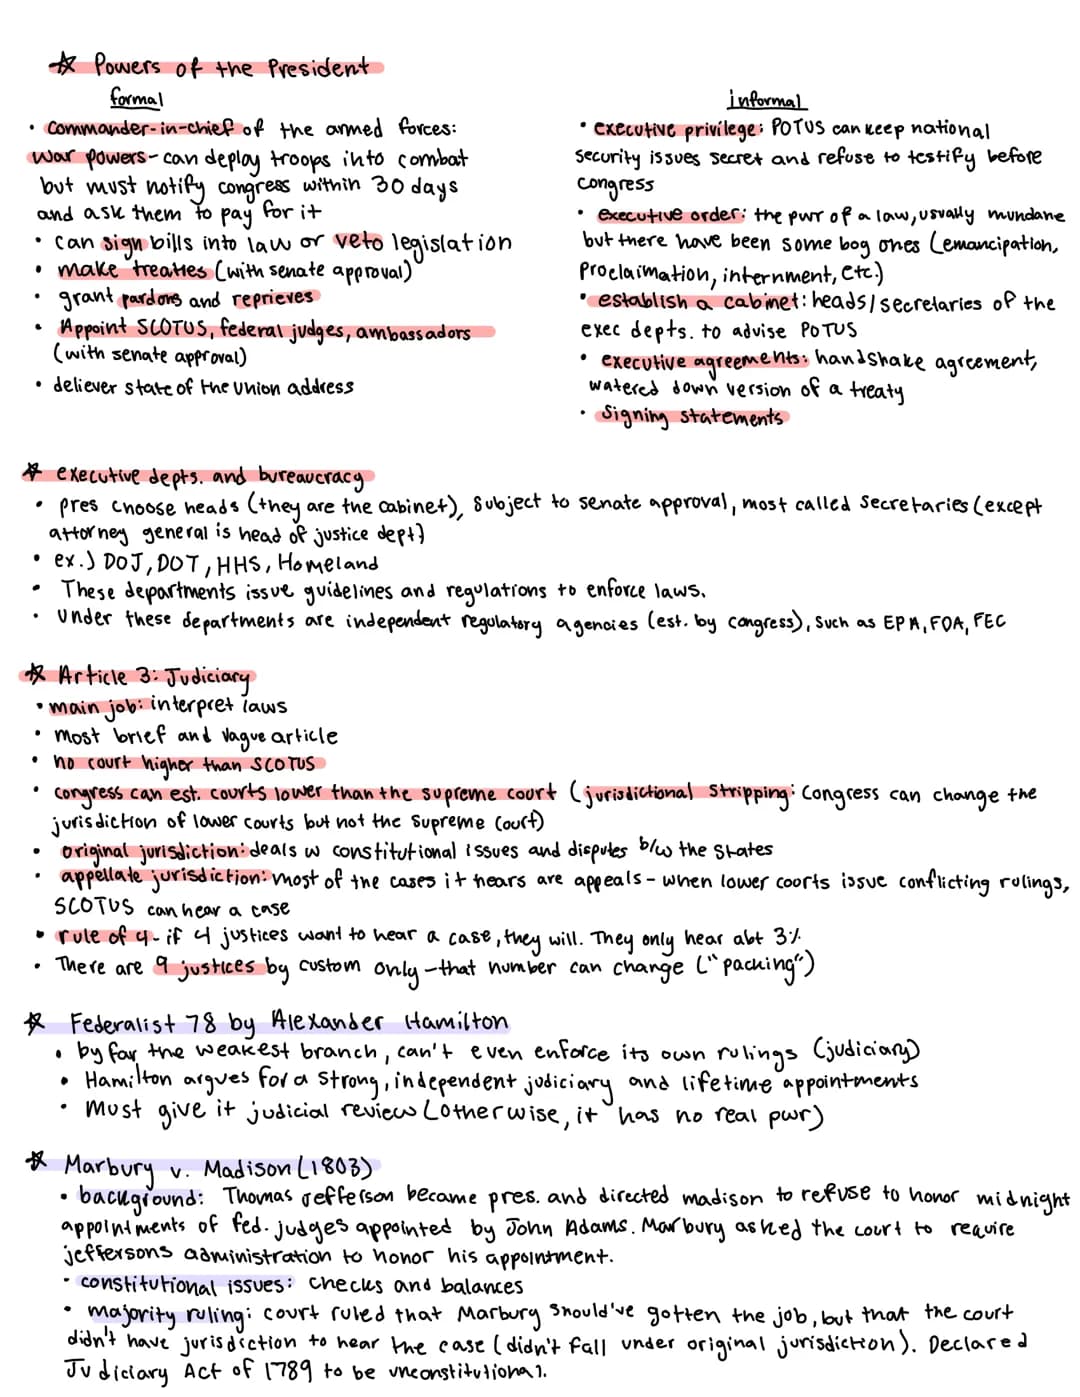 ☆ Powers of the President
formal
• commander-in-chief of the armed forces:
war powers- can deploy troops into combat
but must notify congress within 30 days
and ask them to pay for it
• can sign bills into law or veto legislation
• make treaties (with senate approval)
• grant pardons and reprieves
• Appoint SCOTUS, federal judges, ambassadors
(with senate approval)
• deliever state of the union address
informal
• executive privilege: POTUS can keep national
security issues secret and refuse to testify before
congress
• executive order: the pwr of a law, usually mundane
but there have been some bog ones (emancipation,
Proclaimation, internment, etc.)
• establish a cabinet: heads/secretaries of the
exec depts. to advise POTUS
• executive agreements: handshake agreement,
watered down version of a treaty
• Signing statements
☆ executive depts. and bureaucracy
• pres choose heads (they are the cabinet), subject to senate approval, most called secretaries (except
attorney general is head of justice dept)
• ex.) DOJ, DOT, HHS, Homeland
• These departments issue guidelines and regulations to enforce laws.
• Under these departments are independent regulatory agencies (est. by congress), such as EPA, FDA, FEC
☆ Article 3: Judiciary
• main job: interpret laws
• most brief and vague article
• no court higher than SCOTUS
• congress can est. courts lower than the supreme court (jurisdictional stripping: Congress can change the
jurisdiction of lower courts but not the Supreme Court)
• original jurisdiction: deals w constitutional issues and disputes b/w the states
• appellate jurisdiction: most of the cases it hears are appeals - when lower coorts issue conflicting rulings,
SCOTUS can hear a case
• rule of 4- if 4 justices want to hear a case, they will. They only hear abt 3%
• There are 9 justices by custom only - that number can change ("packing")
☆ Federalist 78 by Alexander Hamilton
• by far the weakest branch, can't even enforce its own rulings (judiciary)
• Hamilton argues for a strong, independent judiciary and lifetime appointments
• Must give it judicial review (otherwise, it has no real pwr)
☆ Marbury v. Madison (1803)
• background: Thomas Jefferson became pres. and directed madison to refuse to honor midnight
appointments of fed. judges appointed by John Adams. Marbury asked the court to require
jeffersons administration to honor his appointment.
• constitutional issues: checks and balances
• majority ruling: court ruled that Marbury should've gotten the job, but that the court
didn't have jurisdiction to hear the case (didn't fall under original jurisdiction). Declared
Judiciary Act of 1789 to be unconstitutional.